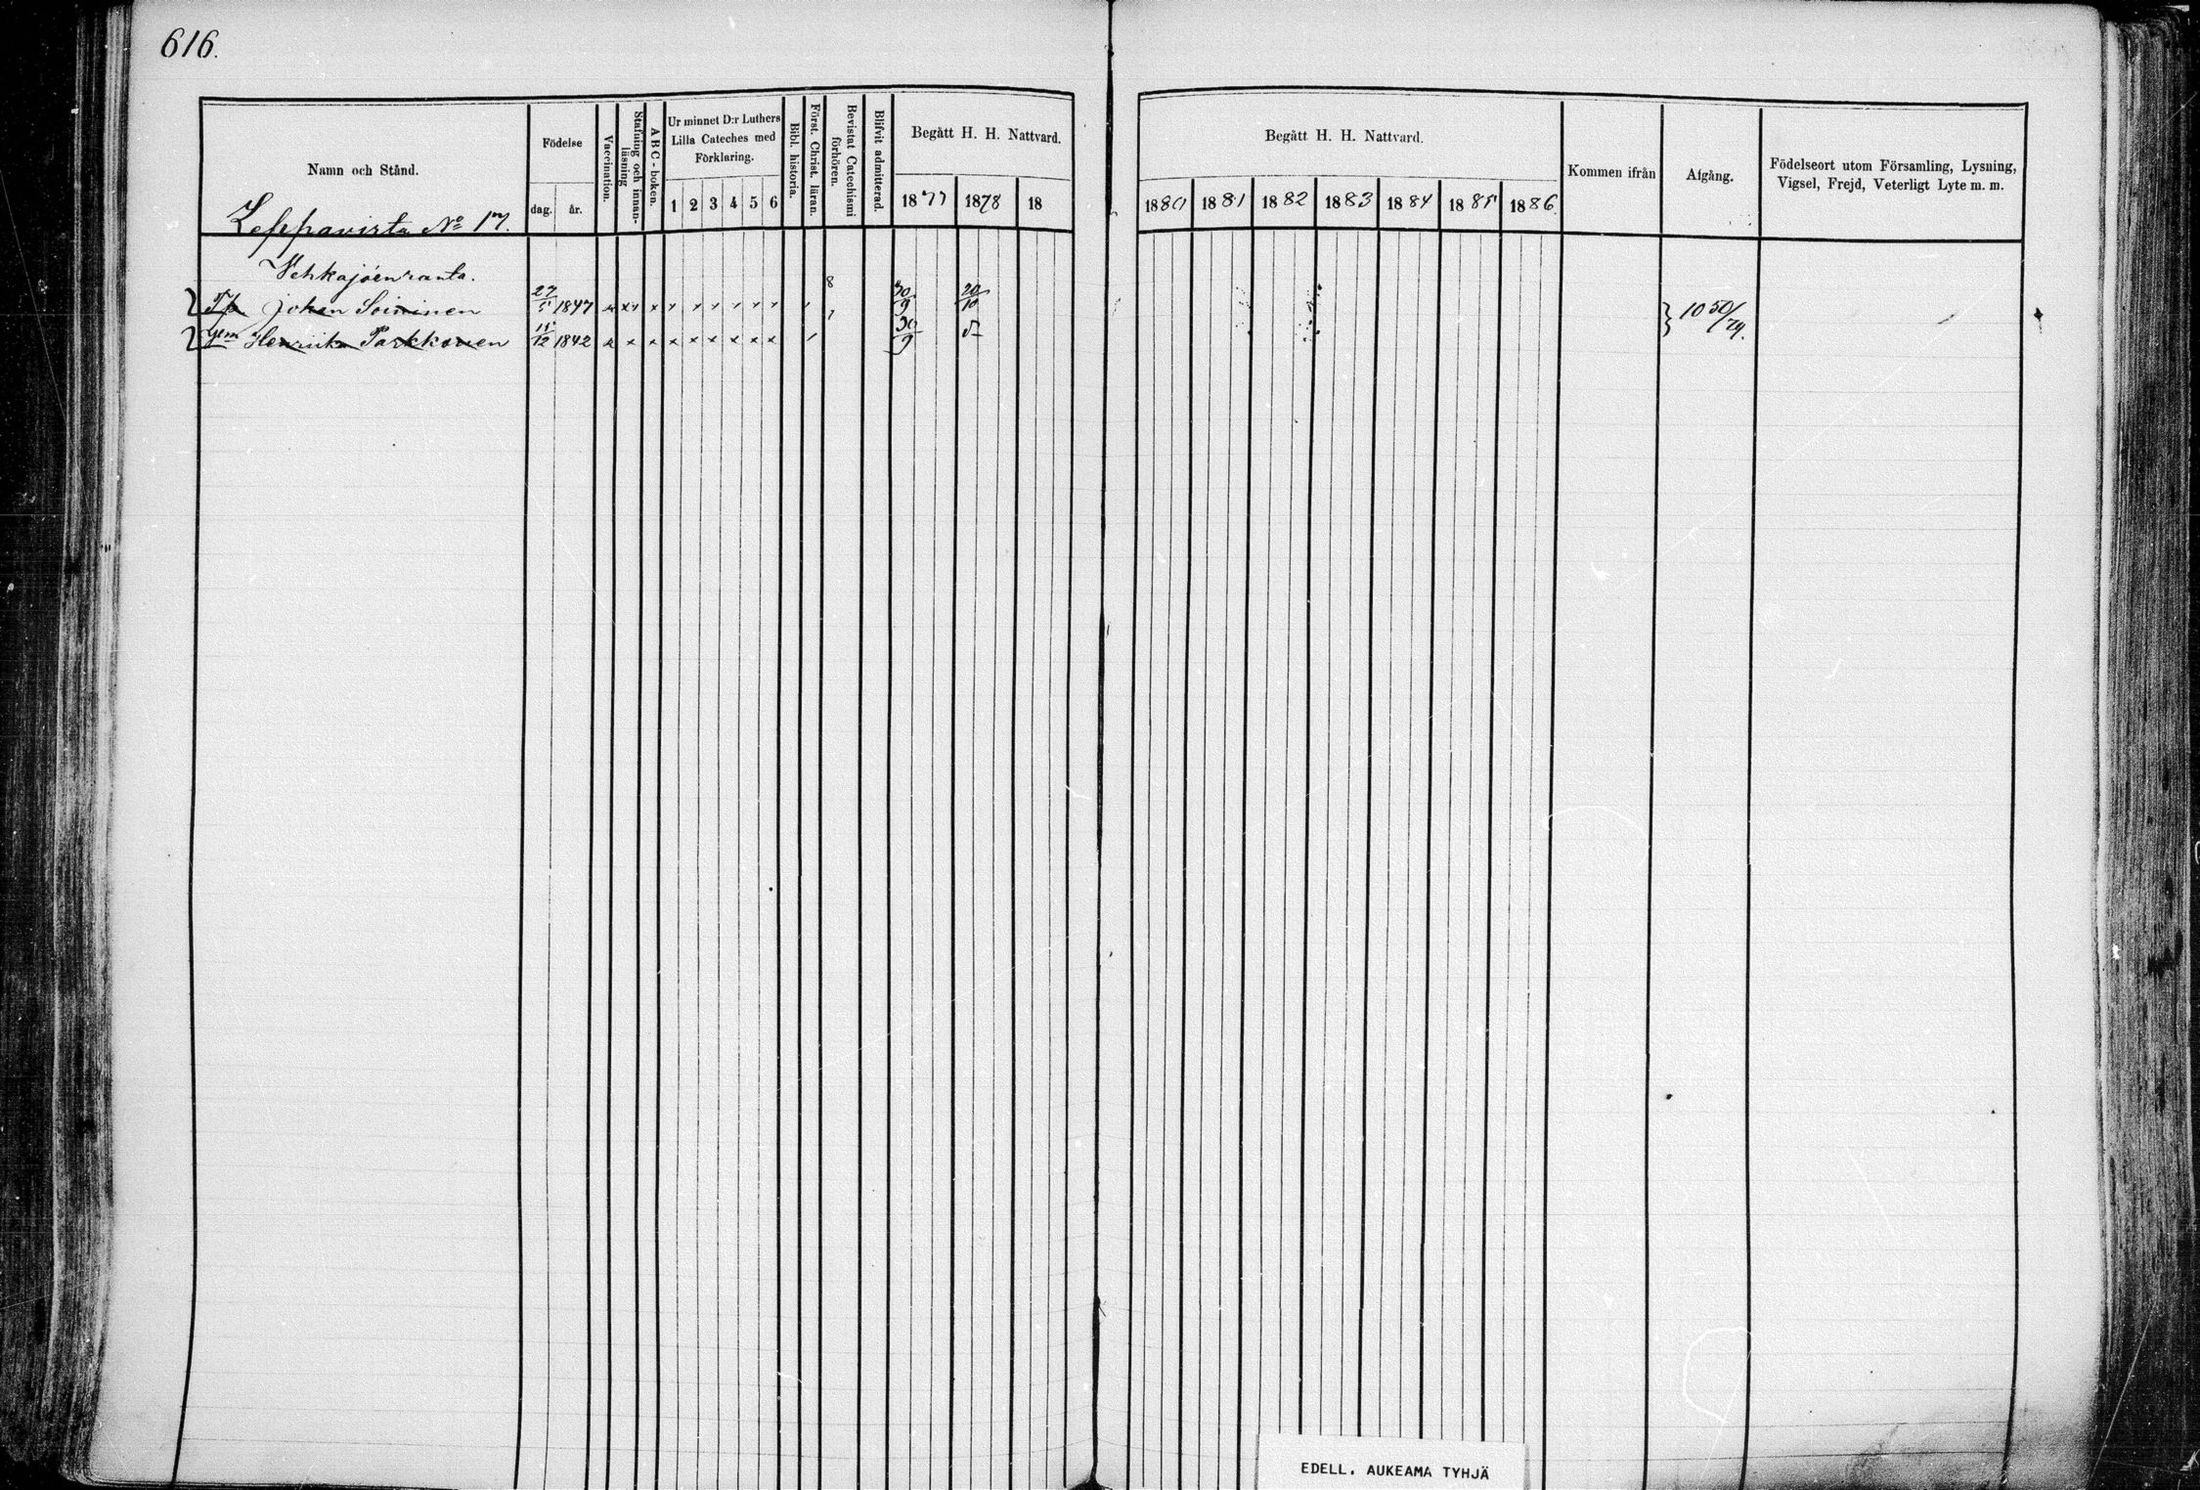 616.
Namn och Stånd.
Leppavirta No 17.
Födelse
dag.
år.
Vaccination.
Stafning och innan-
läsning
ABC-boken.
Ur minnet D:r Luthers
Lilla Cateches med
Förklaring.
1 2 3 4 5 6
Bibl. historia.
Först. Christ. läran.
Bevistat Catechismi
förhören.
Blifvit admitterad.
Begått H. H. Nattvard.
1877 1878 18
Begått H. H. Nattvard.
1880 1881 1882 1883 1884 1885 1886.
Kommen ifrån
Afgång.
Födelseort utom Församling, Lysning,
Vigsel, Frejd, Veterligt Lyte m. m.
Vehkajoenranta.
Johan Soininen 1847 x x x x x x x x x x 8 30/9 20/10
Henriika Parkkonen 15/12 1842 x x x x x x x x x 30/9
EDELL. AUKEAMA TYHJÄ